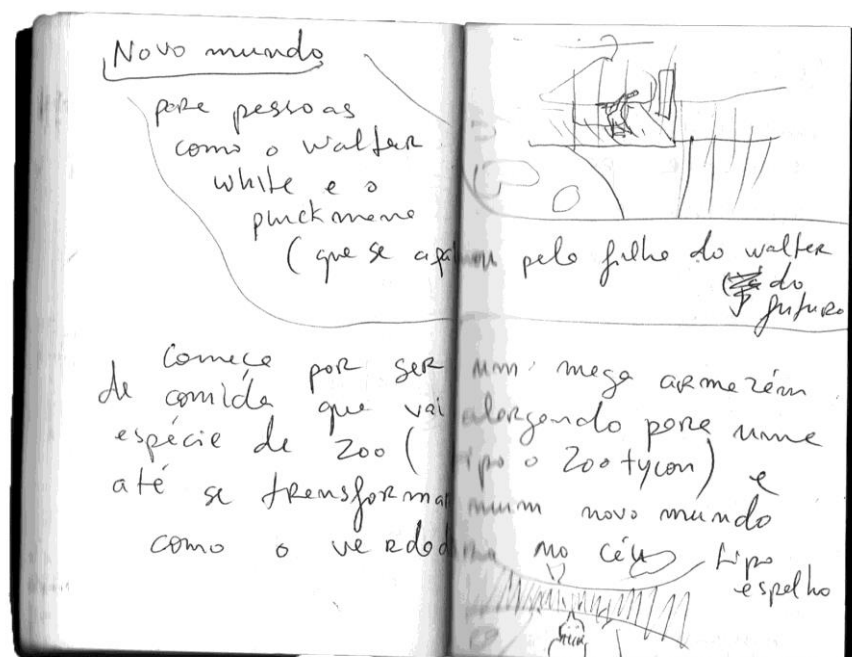 Novo mundo
para pessoas
como o walter
white e o
(que se pelo filho do walter
do
futuro
Começa por ser um mega armazém
de comida que vai alargando para uma
espécie de Zoo (tipo o Zoo tycon) e
até se transformar num novo mundo
como o verdadeiro no céu tipo
espelho